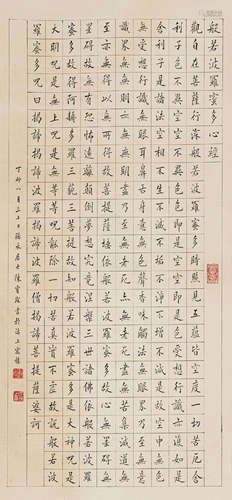 般若波羅蜜多心經
觀自在菩薩行深般若波羅蜜多時照見五蘊皆空度一切苦厄舍
利子色不異空空不異色色即是空空即是色受想行識亦復如是
舍利子是諸法空相不生不滅不垢不淨不增不減是故空中無色
無受想行識無眼耳鼻舌身意無色聲香味觸法無眼界乃至無意
識界無無明亦無無明盡乃至無老死亦無老死盡無苦集滅道無
智亦無得以無所得故菩提薩埵依般若波羅蜜多故心無罣礙無
罣礙故無有恐怖遠離顛倒夢想究竟涅槃三世諸佛依般若波羅
蜜多故得阿耨多羅三藐三菩提故知般若波羅蜜多是大神咒是
大明咒是無上咒是無等等咒能除一切苦真實不虛故說般若波
羅蜜多咒曰揭諦揭諦波羅揭諦波羅僧揭諦菩提薩婆訶
丁卯八月二十日居士陳書於海上